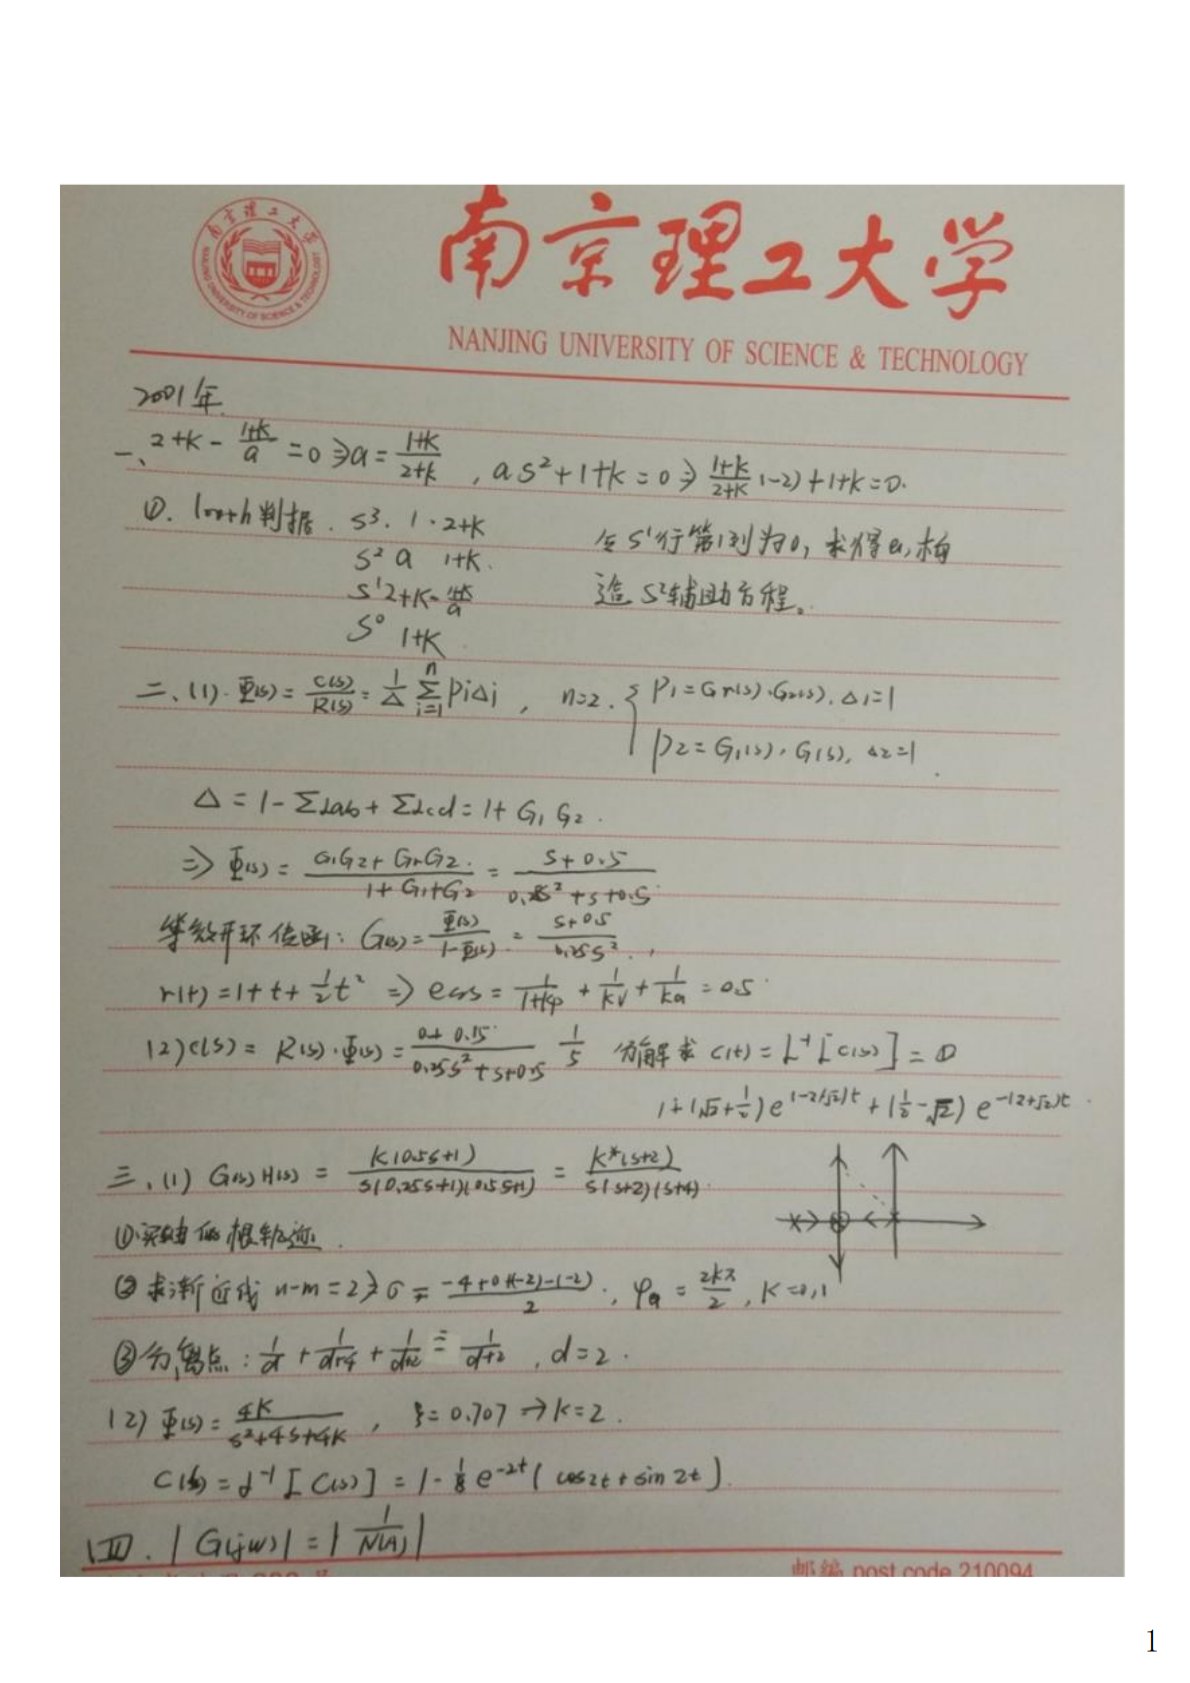 南京理工大学
NANJING UNIVERSITY OF SCIENCE & TECHNOLOGY
2001年.
一、2+K - (1+K)/a = 0 ⇒ a = (1+K)/(2+K) , as²+1+K=0 ⇒ (1+K)/(2+K) (-2)+1+K=0.
①. Routh判据. S³. 1 · 2+K 令S¹行第1列为0, 求得a, 构
S² a 1+K. 造S²辅助方程。
S¹ 2+K-(1+K)/a
S⁰ 1+K
二、(1). Φ(s) = C(s)/R(s) = 1/Δ Σ(i=1→n) PiΔi , n=2. { P1=Gr(s)·G2(s), Δ1=1
P2=G1(s)·G(s), Δ2=1.
Δ = 1 - ΣLab + ΣLcd = 1+G1G2.
⇒ Φ(s) = (G1G2+GrG2)/(1+G1+G2) = (s+0.5)/(0.25s²+s+0.5)
等效开环传函: G(s) = Φ(s)/(1-Φ(s)) = (s+0.5)/(0.25s²) ,
r(t)=1+t+½t² ⇒ ess = 1/(1+kp) + 1/kv + 1/ka = 0.5
(2) C(s) = R(s)·Φ(s) = /(0.25s²+s+0.5) 分解求 c(t) = L⁻¹[C(s)] =
三、(1) G(s)H(s) = K(0.5s+1)/(s(0.25s+1)(0.5s+1)) = K*(s+2)/(s(s+2)(s+4)).
①实轴 根轨迹.
②求渐近线 n-m=2 ⇒ σ = (-4+0+(-2)-(-2))/2 , φa = 2kπ/2 , K=0,1
③分离点: 1/d + 1/(d+4) + 1/(d+2) = 1/(d+2) , d=2.
(2) Φ(s) = 4K/(s²+4s+4K) , ξ=0.707 → K=2.
C(t) = L⁻¹[C(s)] = 1 - ⅛e^(-2t)(cos2t+sin2t).
四. |G(jw)| = |1/N(A)|
邮编 post code 210094
1